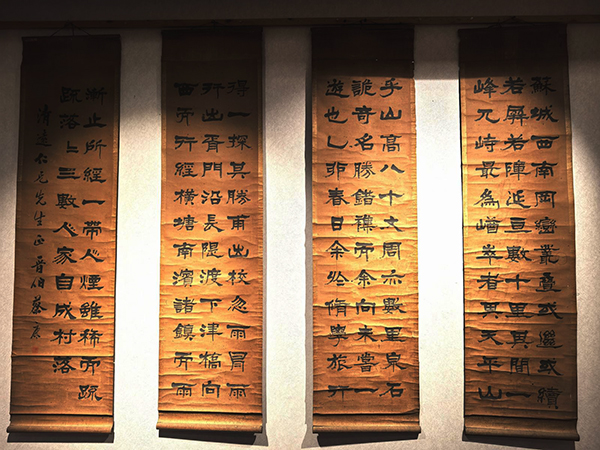 蘇城西南岡巒叢疊或繼或續
若屏若障延亘數十里其間一
峰兀峙最為崷崒者其天平山
乎山高八十丈周亦數里泉石
詭奇名勝錯襍而余向未嘗一
遊也乙卯春日余於脩學旅行
得一探其勝甫出校忽雨冒雨
行出胥門沿長隄渡下津橋向
西而行經橫塘南濱諸鎮而雨
漸止所經一帶人煙雖稀而疏
疏落〻三數人家自成村落
濟遠仁兄先生正 晉伯蔡